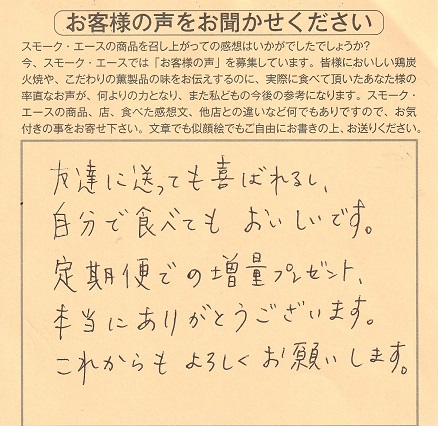 お客様の声をお聞かせください
スモーク・エースの商品を召し上がっての感想はいかがでしたでしょうか?
今、スモーク・エースでは「お客様の声」を募集しています。皆様においしい鶏炭
火焼や、こだわりの薫製品の味をお伝えするのに、実際に食べて頂いたあなた様の
率直なお声が、何よりの力となり、また私どもの今後の参考になります。スモーク・
エースの商品、店、食べた感想文、他店との違いなど何でもありですので、お気
付きの事をお寄せ下さい。文章でも似顔絵でもご自由にお書きの上、お送りください。
友達に送っても喜ばれるし、
自分で食べても おいしいです。
定期便での増量プレゼント、
本当にありがとうございます。
これからも よろしく お願いします。